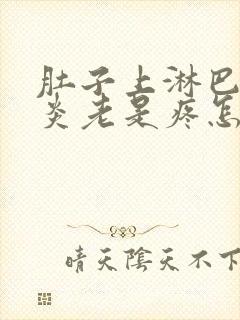 肚子上淋巴
炎老是疼怎
晴天陰天不下